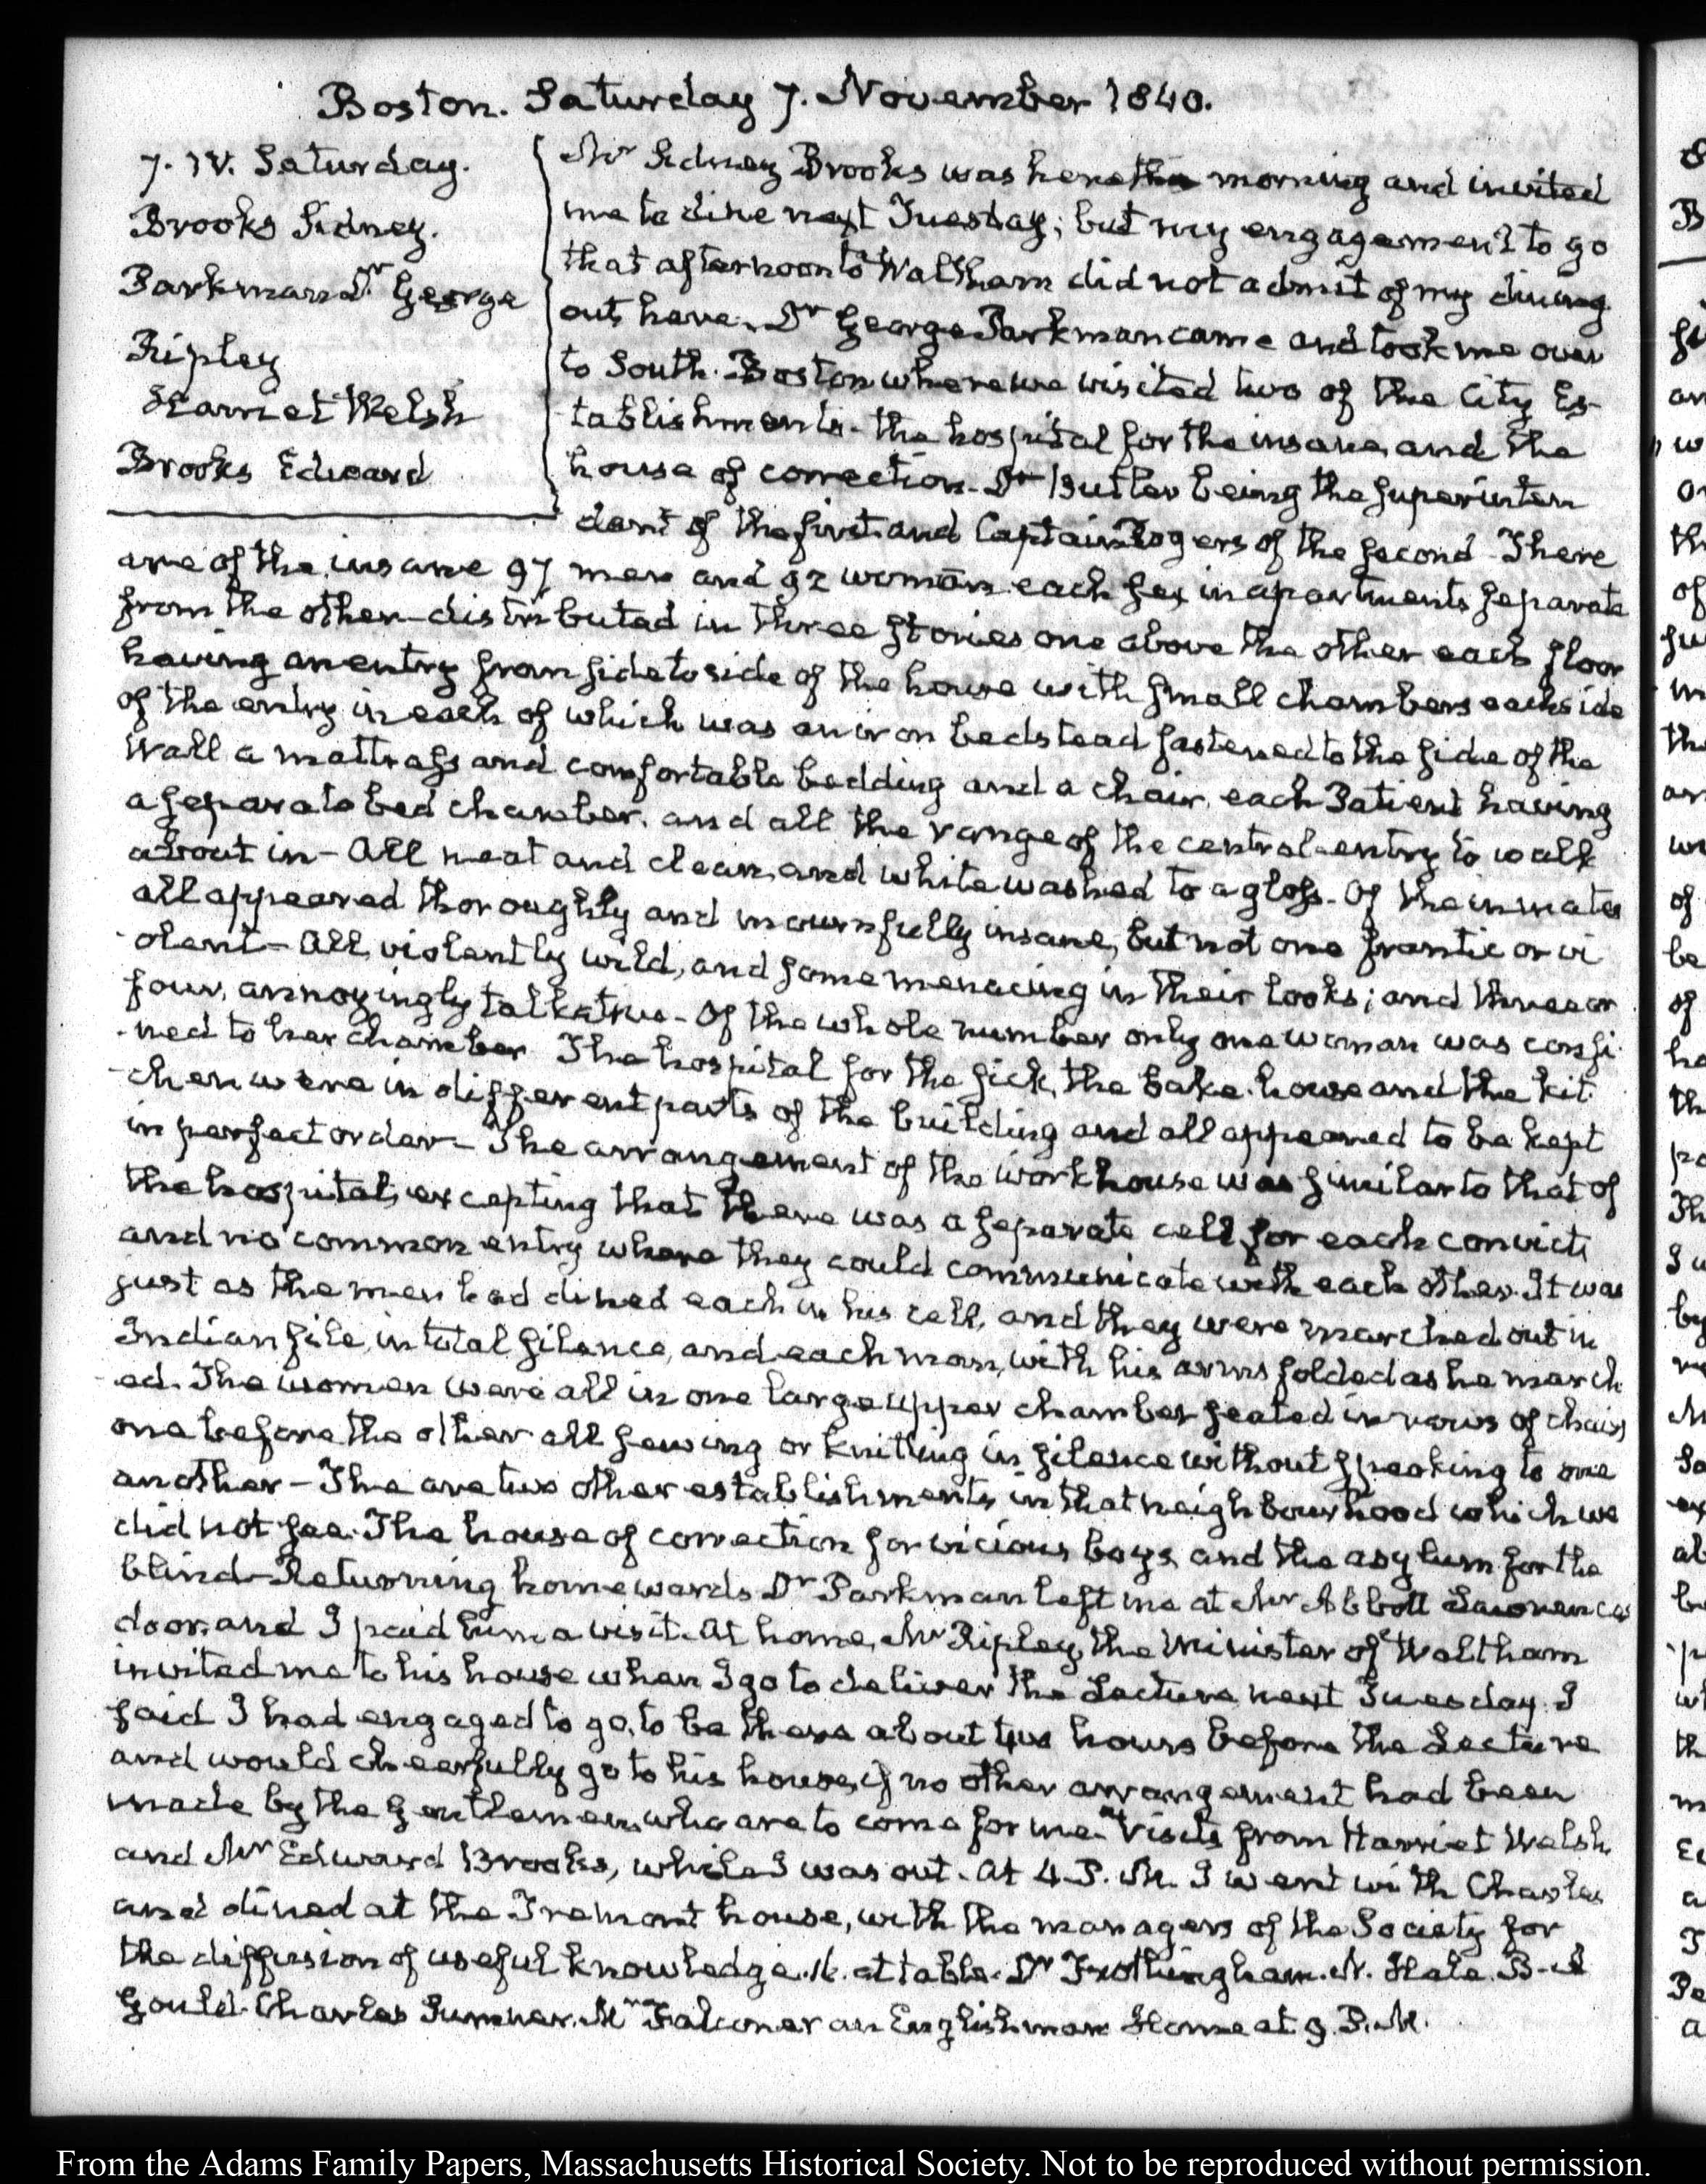 Boston. Saturday 7. November 1840.
7. IV. Saturday.
Brooks Sidney.
Parkman Dr George
Ripley
Harriet Welsh
Brooks Edward
Mr Sidney Brooks was here this morning and invited
me to dine next Tuesday; but my engagement to go
that afternoon to Waltham did not admit of my dining
out here. Dr George Parkman came and took me over
to South-Boston where we visited two of the City Es-
tablishments- the hospital for the insane, and the
house of correction- Dr Butler being the Superinten
dent of the first and Captain Rogers of the second- There
are of the insane 97 men and 92 women each sex in apartments separate
from the other- distributed in three stories one above the other each floor
having an entry from side to side of the house with small chambers each side
of the entry in each of which was an iron bedstead fastened to the side of the
Wall a mattrass and comfortable bedding and a chair, each Patient having
a separate bed chamber, and all the range of the central-entry to walk
about in- All neat and clean, and white washed to a gloss- Of the inmates
all appeared thoroughly and mournfully insane, but not one frantic or vi
olent- All, violently wild, and some menacing in their looks; and three or
four, annoyingly talkative- Of the whole number only one woman was confi
-ned to her chamber The hospital for the sick, the bake-house and the kit
-chen were in different parts of the building and all appeared to be kept
in perfect order- The arrangement of the work house was similar to that of
the hospital; excepting that there was a separate cell for each convict
and no common entry where they could communicate with each other. It was
just as the men had dined each in his cell, and they were marched out in
Indian file, in total silence, and each man, with his arms folded as he march
-ed. The women were all in one large upper chamber seated in rows of chairs
one before the other all sewing or knitting in silence without speaking to one
another- The are two other establishments in that neighbourhood which we
did not see. The house of correction for vicious boys, and the asylum for the
blind- Returning homewards Dr Parkman left me at Mr Abbott Lawrence's
door, and I paid him a visit. At home, Mr Ripley, the Minister of Waltham
invited me to his house when I go to deliver the Lecture next Tuesday. I
said I had engaged to go, to be there about two hours before the Lecture
and would cheerfully go to his house, if no other arrangement had been
made by the Gentlemen, who are to come for me. Visits from Harriet Welsh
and Mr Edward Brooks, while I was out- At 4. P.M. I went with Charles
and dined at the Tremont house, with the managers of the Society for
the diffusion of useful knowledge. 16. at table- Dr Frothingham. N. Hale. B. A
Gould- Charles Sumner. Mr Falconer an Englishman Home at 9. P.M.
From the Adams Family Papers, Massachusetts Historical Society. Not to be reproduced without permission.